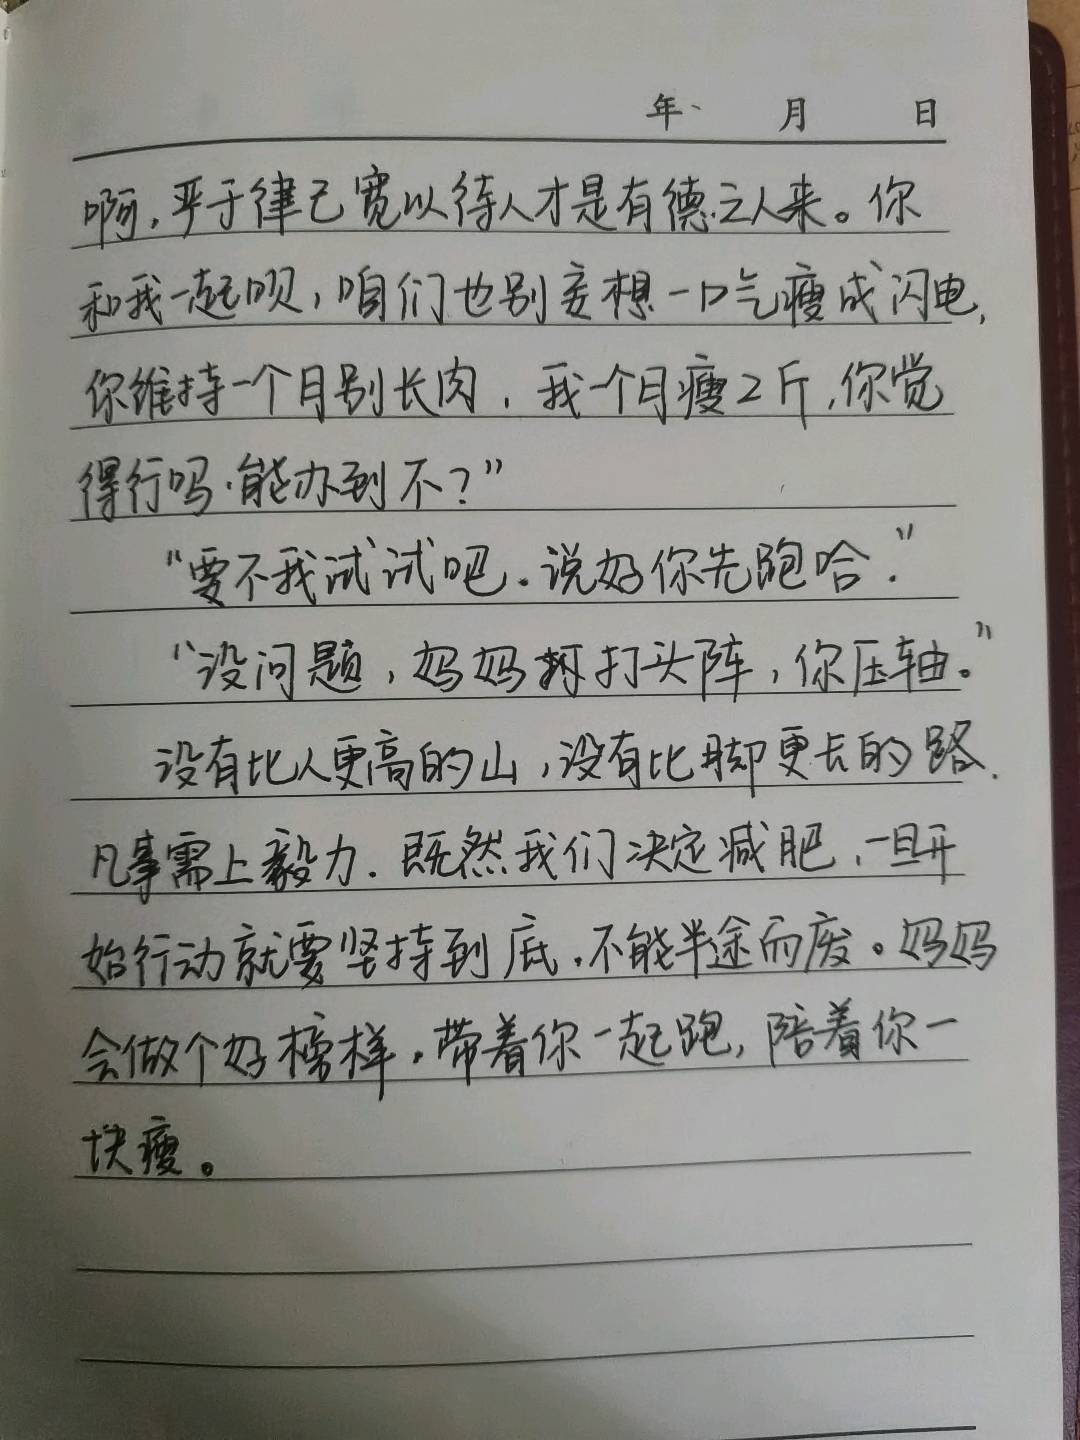 年 月 日
啊,严于律己宽以待人才是有德之人来。你
和我一起呗,咱们也别妄想一口气瘦成闪电,
你维持一个月别长肉,我一个月瘦2斤,你觉
得行吗.能办到不?”
“要不我试试吧.说好你先跑哈.”
“没问题,妈妈打头阵,你压轴。”
没有比人更高的山,没有比脚更长的路.
凡事需上毅力.既然我们决定减肥,一旦开
始行动就要坚持到底.不能半途而废。妈妈
会做个好榜样.带着你一起跑,陪着你一
块瘦。